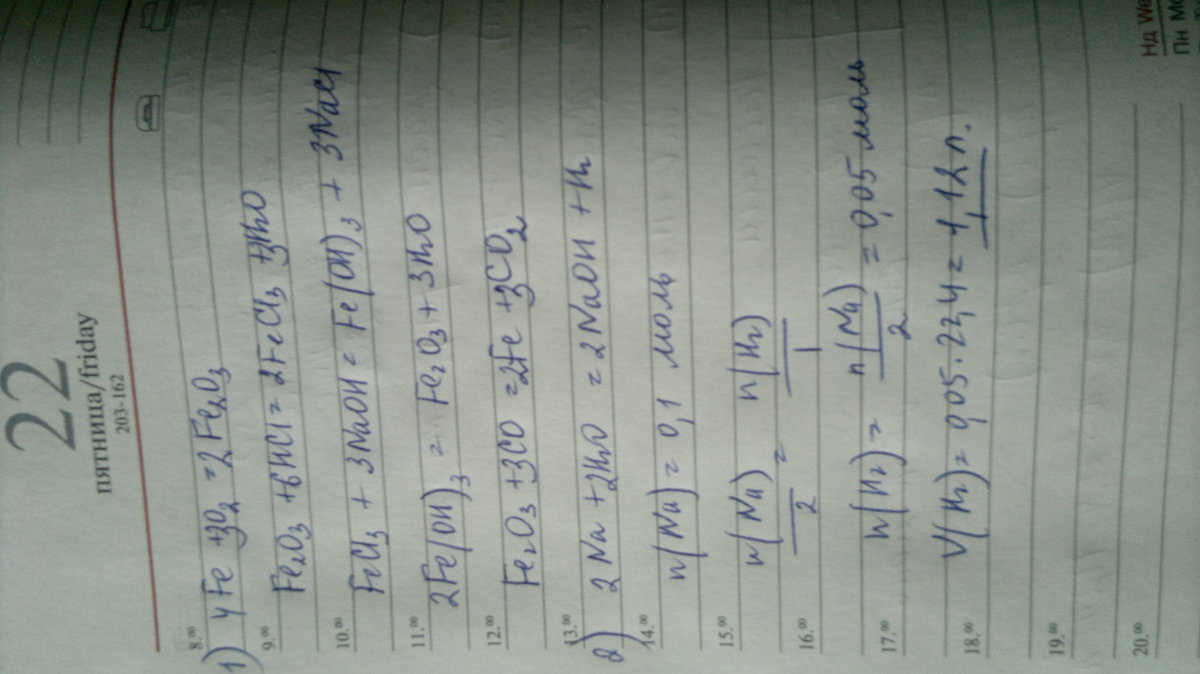 22
пятница/friday
203-162
8.00
1) 4Fe + 3O2 = 2Fe2O3
9.00
Fe2O3 + 6HCl = 2FeCl3 + 3H2O
10.00
FeCl3 + 3NaOH = Fe(OH)3 + 3NaCl
11.00
2Fe(OH)3 = Fe2O3 + 3H2O
12.00
Fe2O3 + 3CO = 2Fe + 3CO2
13.00
2) 2Na + 2H2O = 2NaOH + H2
14.00
n(Na) = 0,1 моль
15.00
n(Na)/2 = n(H2)/1
16.00
17.00
n(H2) = n(Na)/2 = 0,05 моль
18.00
V(H2) = 0,05 · 22,4 = 1,12 л.
19.00
20.00
Нд We
Пн Mo